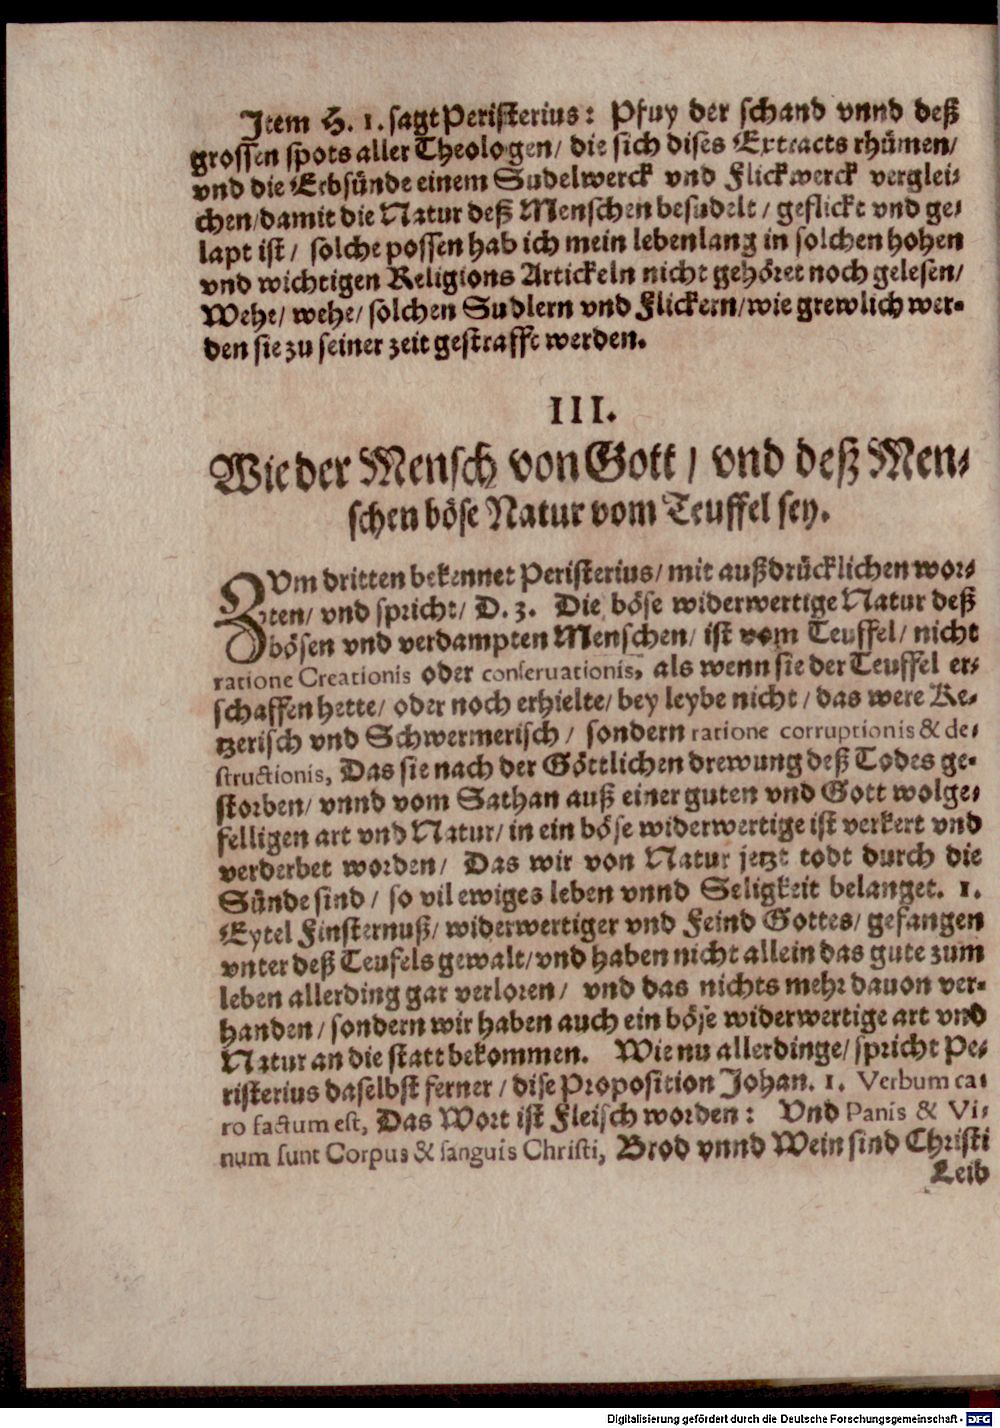 Item H. 1. sagt Peristerius: Pfuy der schand vnnd deß
grossen spots aller Theologen/ die sich dises Extracts rhümen/
vnd die Erbsünde einem Sudelwerck vnd Flickwerck verglei-
chen/ damit die Natur deß Menschen besudelt/ geflickt vnd ge-
lapt ist/ solche possen hab ich mein lebenlang in solchen hohen
vnd wichtigen Religions Artickeln nicht gehöret noch gelesen/
Wehe/ wehe/ solchen Sudlern vnd Flickern/ wie grewlich wer-
den sie zu seiner zeit gestrafft werden.
III.
Wie der Mensch von Gott/ vnd deß Men-
schen böse Natur vom Teuffel sey.
ZVm dritten bekennet Peristerius/ mit außdrücklichen wor-
ten/ vnd spricht/ D. 3. Die böse widerwertige Natur deß
bösen vnd verdampten Menschen/ ist vom Teuffel/ nicht
ratione Creationis oder conseruationis, als wenn sie der Teuffel er-
schaffen hette/ oder noch erhielte/ bey leybe nicht/ das were Ke-
tzerisch vnd Schwermerisch/ sondern ratione corruptionis & de-
structionis, Das sie nach der Göttlichen drewung deß Todes ge-
storben/ vnnd vom Sathan auß einer guten vnd Gott wolge-
felligen art vnd Natur/ in ein böse widerwertige ist verkert vnd
verderbet worden/ Das wir von Natur jetzt todt durch die
Sünde sind/ so vil ewiges leben vnnd Seligkeit belanget. 1.
Eytel Finsternuß/ widerwertiger vnd Feind Gottes/ gefangen
vnter deß Teufels gewalt/ vnd haben nicht allein das gute zum
leben allerding gar verloren/ vnd das nichts mehr dauon ver-
handen/ sondern wir haben auch ein böse widerwertige art vnd
Natur an die statt bekommen. Wie nu allerdinge/ spricht Pe-
risterius daselbst ferner/ dise Proposition Johan. 1. Verbum ca-
ro factum est, Das Wort ist Fleisch worden: Vnd Panis & Vi-
num sunt Corpus & sanguis Christi, Brod vnnd Wein sind Christi
Leib
Digitalisierung gefördert durch die Deutsche Forschungsgemeinschaft - DFG